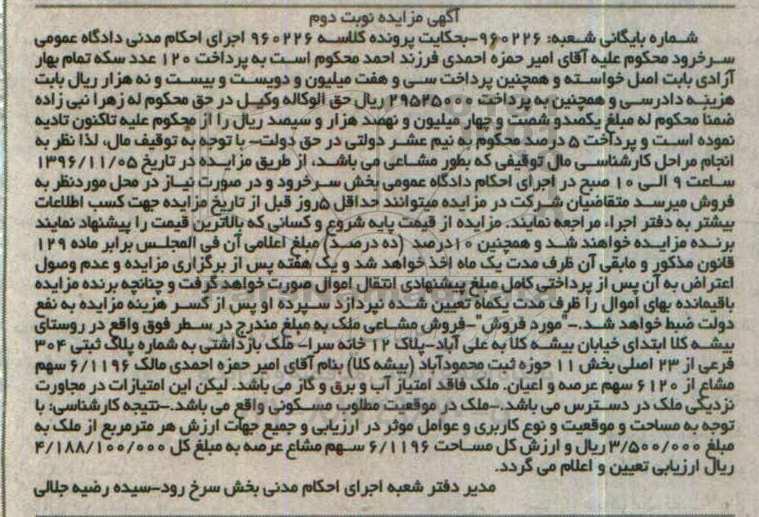 آگهی مزایده نوبت دوم
شماره بایگانی شعبه: ۹۶۰۲۲۶-بحکایت پرونده کلاسه ۹۶۰۲۲۶ اجرای احکام مدنی دادگاه عمومی
سرخرود محکوم علیه آقای امیر حمزه احمدی فرزند احمد محکوم است به پرداخت ۱۲۰ عدد سکه تمام بهار
آزادی بابت اصل خواسته و همچنین پرداخت سی و هفت میلیون و دویست و بیست و نه هزار ریال بابت
هزینه دادرسی و همچنین به پرداخت ۲۹۵۲۵۰۰۰ ریال حق الوکاله وکیل در حق محکوم له زهرا نبی زاده
ضمنا محکوم له مبلغ یکصدو شصت و چهار میلیون و نهصد هزار و سیصد ریال را از محکوم علیه تاکنون تادیه
نموده است و پرداخت ۵ درصد محکوم به نیم عشر دولتی در حق دولت- با توجه به توقیف مال، لذا نظر به
انجام مراحل کارشناسی مال توقیفی که بطور مشاعی می باشد، از طریق مزایده در تاریخ ۱۳۹۶/۱۱/۰۵
ساعت ۹ الی ۱۰ صبح در اجرای احکام دادگاه عمومی بخش سرخرود و در صورت نیاز در محل موردنظر به
فروش میرسد متقاضیان شرکت در مزایده میتوانند حداقل ۵روز قبل از تاریخ مزایده جهت کسب اطلاعات
بیشتر به دفتر اجراء مراجعه نمایند. مزایده از قیمت پایه شروع و کسانی که بالاترین قیمت را پیشنهاد نمایند
برنده مزایده خواهند شد و همچنین ۱۰درصد (ده درصد) مبلغ اعلامی آن فی المجلس برابر ماده ۱۲۹
قانون مذکور و مابقی آن ظرف مدت یک ماه اخذ خواهد شد و یک هفته پس از برگزاری مزایده و عدم وصول
اعتراض به آن پس از پرداختی کامل مبلغ پیشنهادی انتقال اموال صورت خواهد گرفت و چنانچه برنده مزایده
باقیمانده بهای اموال را ظرف مدت یکماه تعیین شده نپردازد سپرده او پس از کسر هزینه مزایده به نفع
دولت ضبط خواهد شد.-"مورد فروش"-فروش مشاعی ملک به مبلغ مندرج در سطر فوق واقع در روستای
بیشه کلا ابتدای خیابان بیشه کلا به علی آباد-پلاک ۱۲ خانه سرا- ملک بازداشتی به شماره پلاگ ثبتی ۳۰۴
فرعی از ۲۳ اصلی بخش ۱۱ حوزه ثبت محمودآباد (بیشه کلا) بنام آقای امیر حمزه احمدی مالک ۶/۱۱۹۶ سهم
مشاع از ۶۱۲۰ سهم عرصه و اعیان. ملک فاقد امتیاز آب و برق و گاز می باشد. لیکن این امتیازات در مجاورت
نزدیکی ملک در دسترس می باشد.-ملک در موقعیت مطلوب مسکونی واقع می باشد.-نتیجه کارشناسی: با
توجه به مساحت و موقعیت و نوع کاربری و عوامل موثر در ارزیابی و جمیع جهات ارزش هر مترمربع از ملک به
مبلغ ۳/۵۰۰/۰۰۰ ریال و ارزش کل مساحت ۶/۱۱۹۶ سهم مشاع عرصه به مبلغ کل ۴/۱۸۸/۱۰۰/۰۰۰
ریال ارزیابی تعیین و اعلام می گردد.
مدیر دفتر شعبه اجرای احکام مدنی بخش سرخ رود-سیده رضیه جلالی